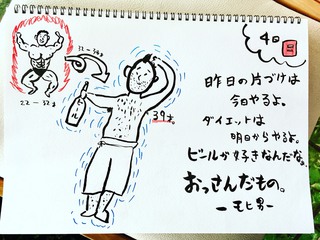 4日目
22-32才
33-38才
39才。
昨日の片づけは
今日やるよ。
ダイエットは
明日からやるよ。
ビールが好きなんだな。
おっさんだもの。
ーモヒ男ー